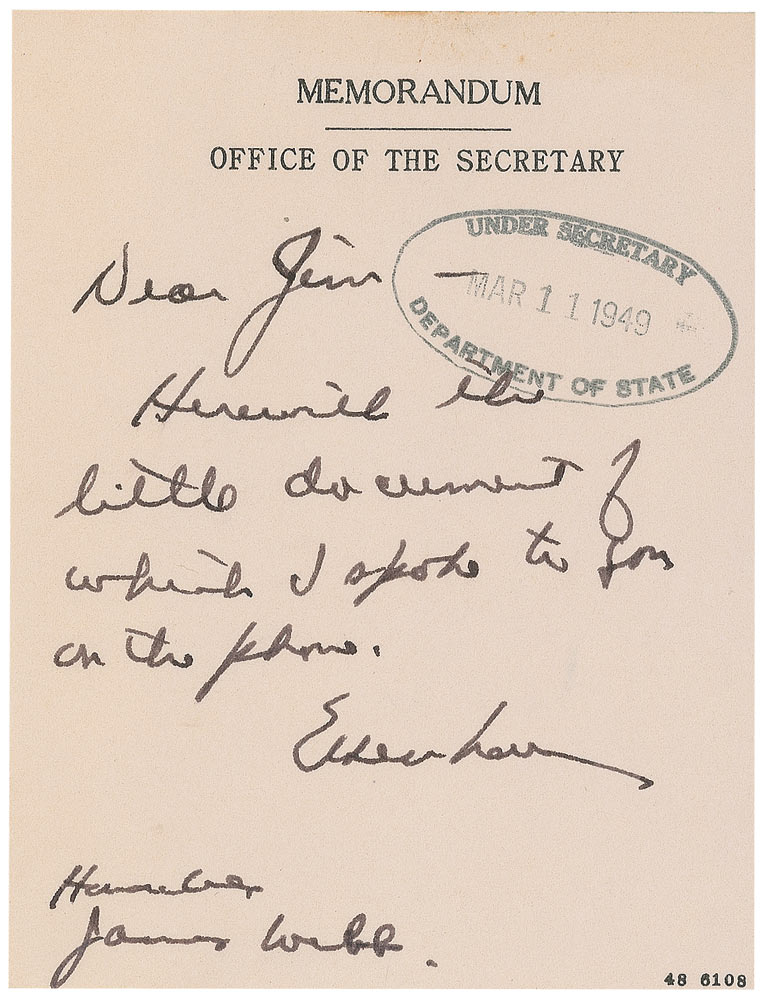 MEMORANDUM
OFFICE OF THE SECRETARY
UNDER SECRETARY
MAR 11 1949
DEPARTMENT OF STATE
Dear Jim —
Herewith the
little document of
which I spoke to you
on the phone.
Eisenhower
Honorable
James Webb.
48 6108